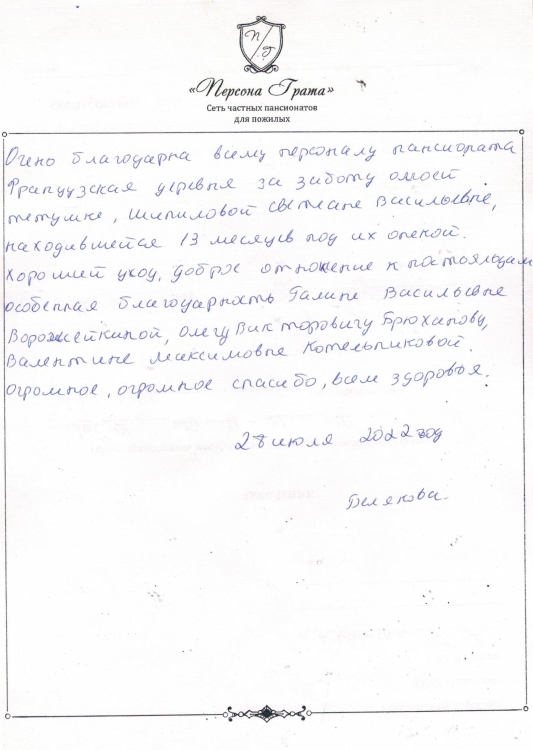 П/Г
«Персона Грата»
Сеть частных пансионатов
для пожилых
Очень благодарна всему персоналу пансионата
Французская деревня за заботу о моей
тетушке, Шипиловой Светлане Васильевне,
находившейся 13 месяцев под их опекой.
Хороший уход, доброе отношение к постояльцам
особенная благодарность Галине Васильевне
Ворожейкиной, Олегу Викторовичу Брюханову,
Валентине Максимовне Котельниковой.
Огромное, огромное спасибо, всем здоровья.
28 июля 2022 год
Белякова.